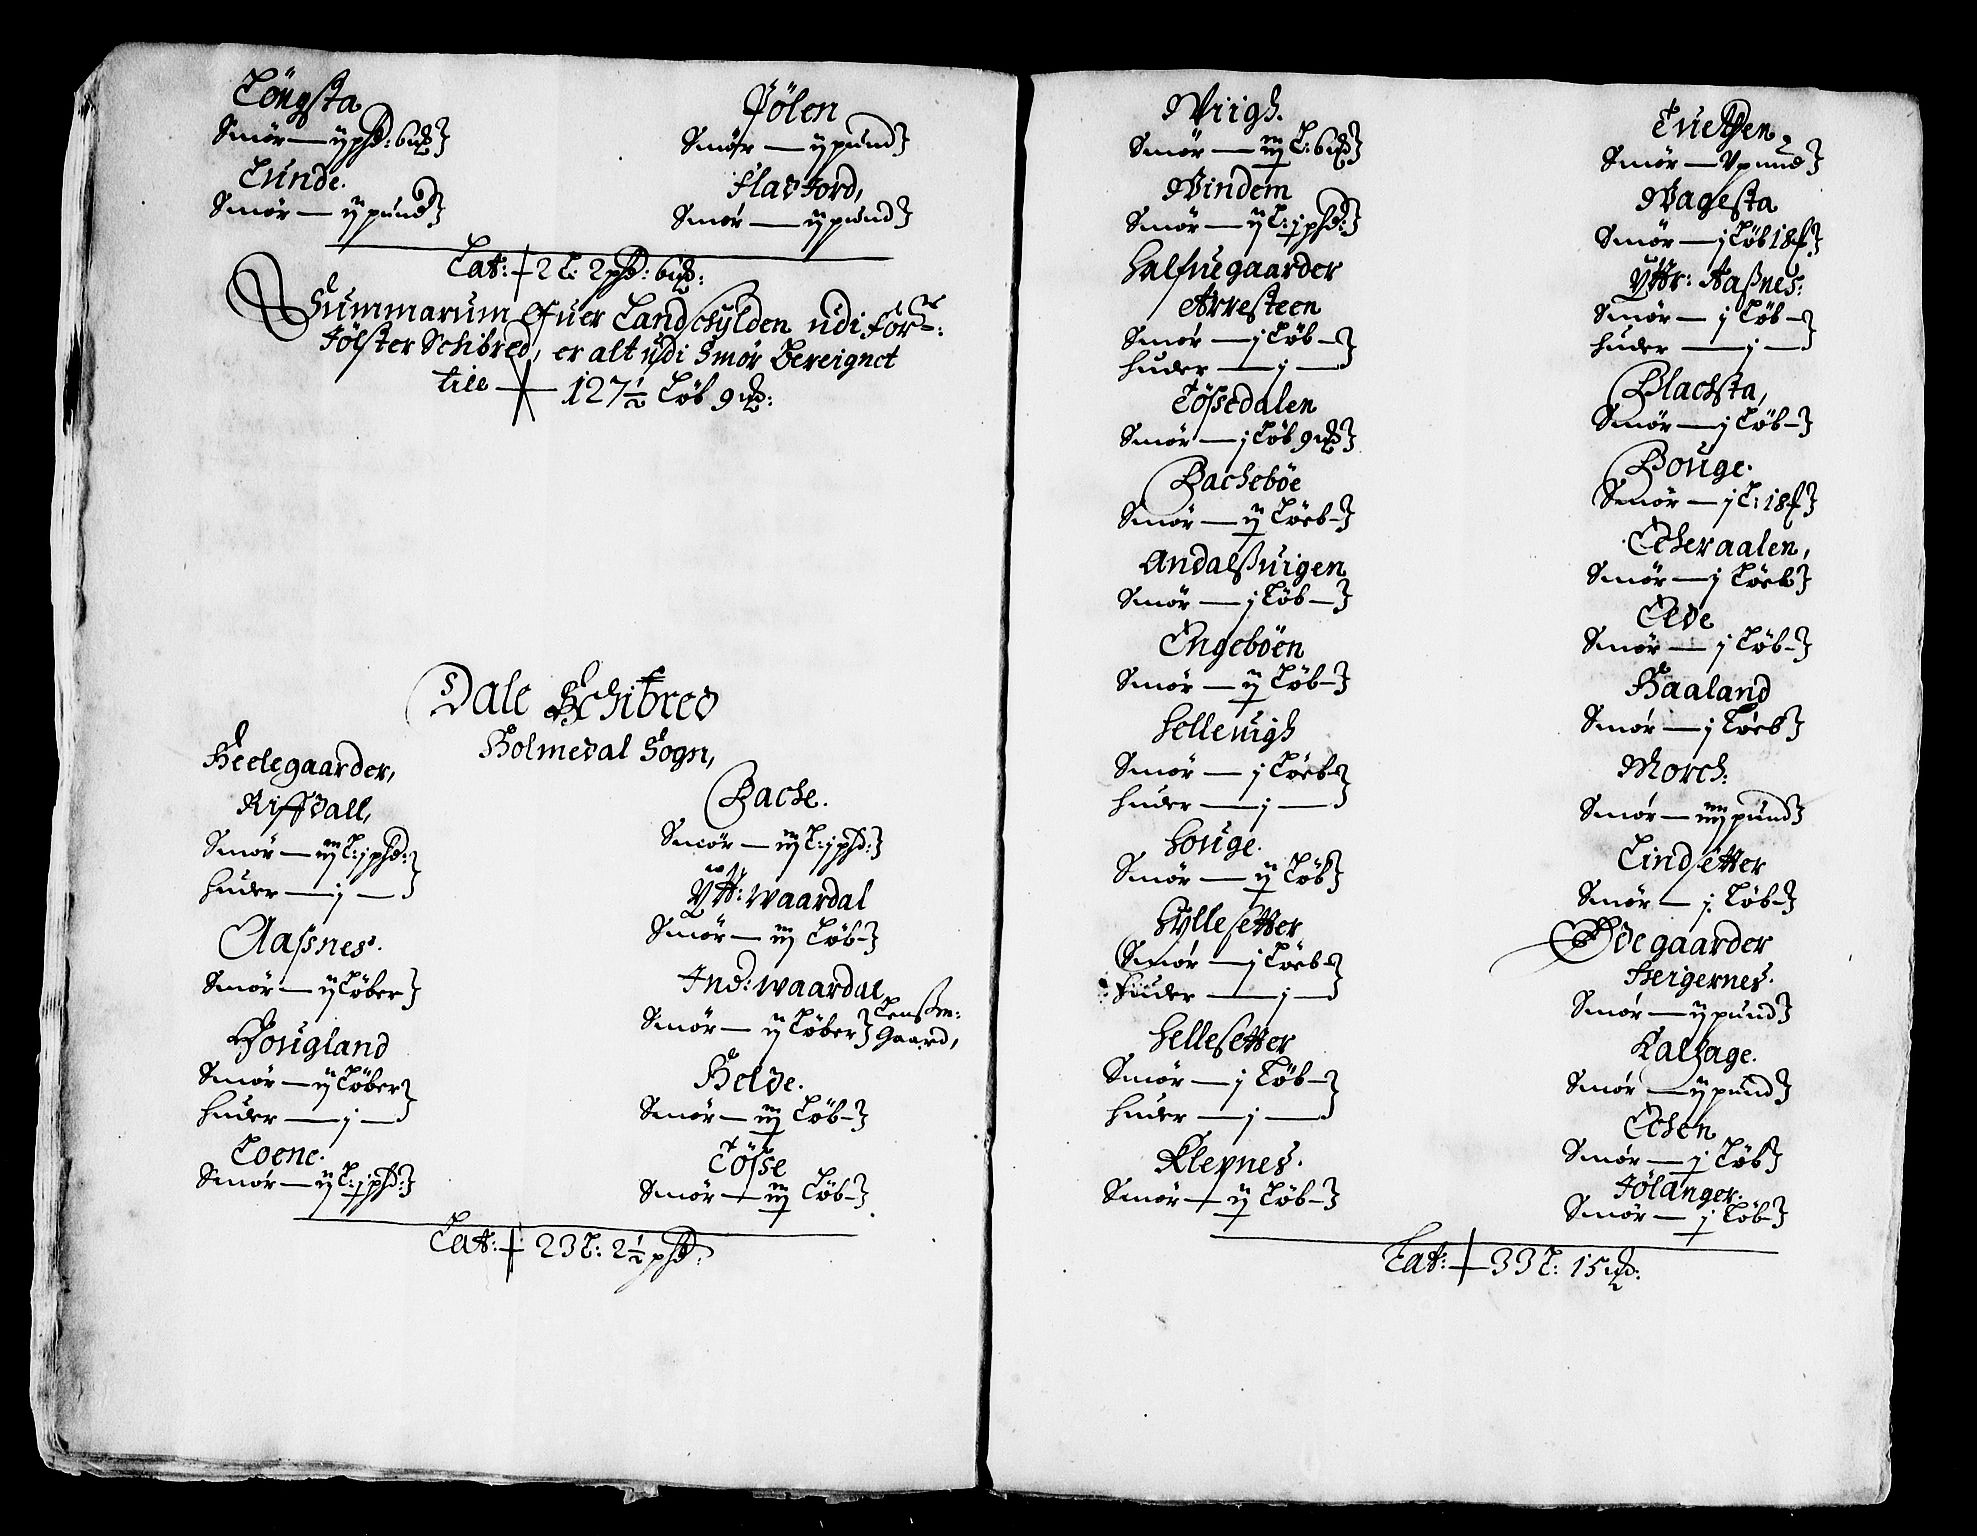 Längsta
Smör — ij pħd: 6 mk }
Lunde.
Smör — ij pund }
Jölen
Smör — ij pund }
Flad Jord,
Smör — ij pund }
Lat: 2 L: 2 pħd: 6 mk:
Summarum Ofuer Landschylden udi for:ne:
Jölster Schibred, er alt udi Smör Bereignet
till — 127½ Löb 9 mk:
Dale Schibred
Holmedal Sogn,
Heelegaarder,
Riffdall,
Smör — iij L: j pħd: }
Huder — j — }
Aasnes.
Smör — ij Löber }
Hougland
Smör — ij Löber }
Huder — j — }
Loene.
Smör — ij L: j pħd: }
Bache.
Smör — iij L: j pħd: }
Ytt: Waardal
Smör — iij Löb – }
Ind: Waardal
Smör — ij Löber } Lensm:
Gaard,
Helde.
Smör — iij Löb – }
Tösse
Smör — iij Löb – }
Lat: 23 L: 2½ pħd:
Wiigh.
Smör — iij L: 6 mk }
Windem
Smör — ij L: j pħd: }
Halfuegaarder
Arresteen
Smör — j Löb – }
Huder — j — }
Tössedalen
Smör — j Löb 9 mk }
Bacheböe
Smör — ij Löeb – }
Andalsuigen
Smör — j Löb — }
Engeböen
Smör — ij Löb – }
Helleuigh
Smör — j Löeb – }
Huder — j — }
Houge.
Smör — ij Löb }
Hyllesetter
Smör — j Löeb – }
Huder — j — }
Hellesetter
Smör — j Löb – }
Huder — j — }
Klepnes.
Smör — ij Löb – }
Tueten,
Smör — V pund }
Wagesta
Smör — j Löb 18 }
Yttr: Aasnes:
Smör — j Löb – }
Huder — j — }
Blachsta,
Smör — j Löb – }
Bouge.
Smör — j L: 18 }
Echeraalen,
Smör — j Löeb }
Elde
Smör — j Löb – }
Haaland
Smör — j Löeb }
Morch:
Smör — iiij pund }
Lindsetter
Smör — j Löb – }
Ödegaarder
Heigernes.
Smör — ij pund }
Kalhage.
Smör — ij pund }
Echen
Smör — j Löb }
Jölanger.
Smör — j Löb – }
Lat: 33 L: 15 mk: